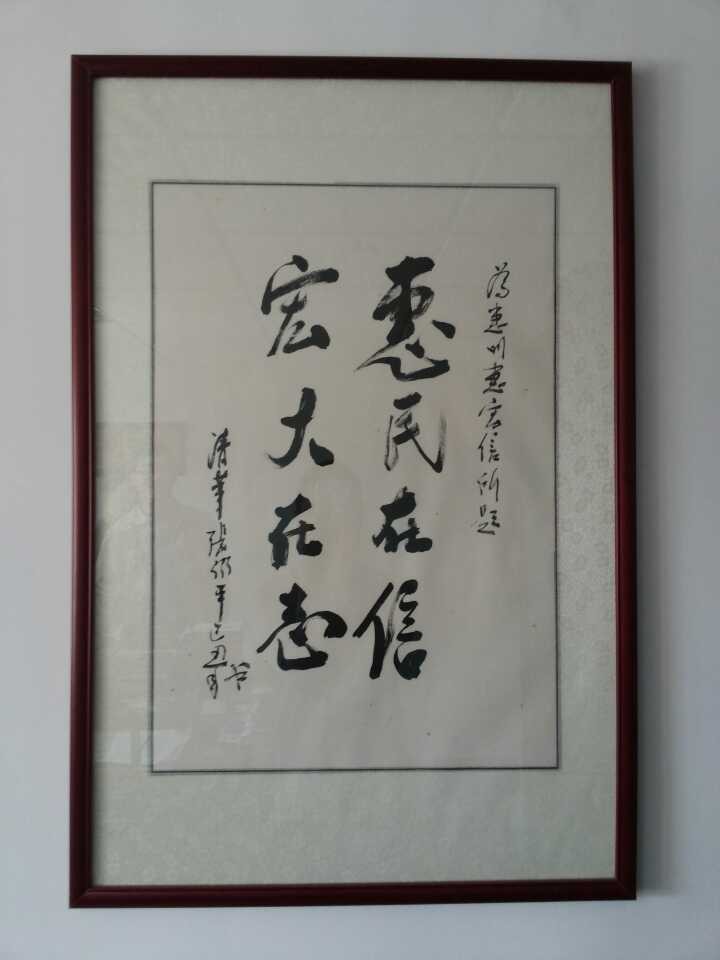 为惠州惠宏信所题
惠民在信
宏大在志
清华張
己丑